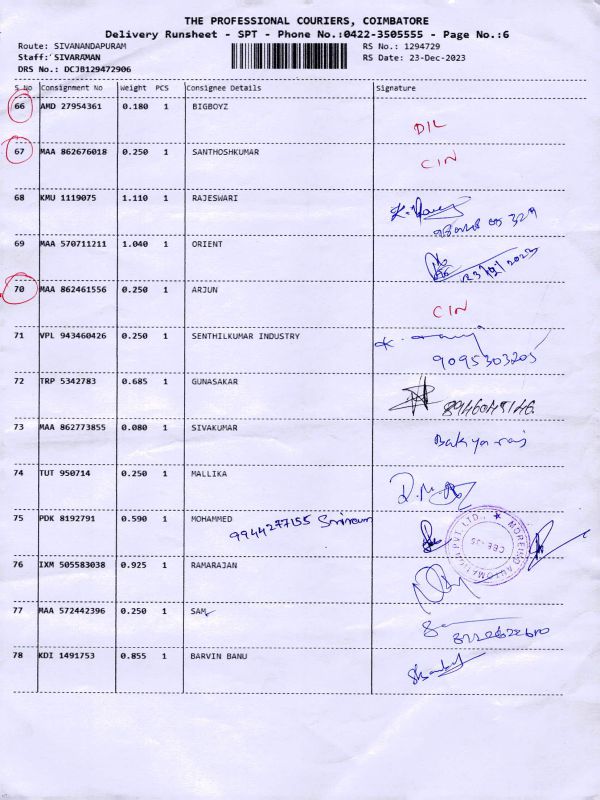 THE PROFESSIONAL COURIERS, COIMBATORE
Delivery Runsheet - SPT - Phone No.:0422-3505555 - Page No.:6
Route: SIVANANDAPURAM RS No.: 1294729
Staff: SIVARAMAN RS Date: 23-Dec-2023
DRS No.: DCJB129472906
S No Consignment No Weight PCS Consignee Details Signature
66 AMD 27954361 0.180 1 BIGBOYZ
DIL
67 MAA 862676018 0.250 1 SANTHOSHKUMAR
CIN
68 KMU 1119075 1.110 1 RAJESWARI
69 MAA 570711211 1.040 1 ORIENT
23/12/2023
70 MAA 862461556 0.250 1 ARJUN
CIN
71 VPL 943460426 0.250 1 SENTHILKUMAR INDUSTRY
9095303205
72 TRP 5342783 0.685 1 GUNASAKAR
8946045146
73 MAA 862773855 0.080 1 SIVAKUMAR
Bakyaraj
74 TUT 950714 0.250 1 MALLIKA
75 PDK 8192791 0.590 1 MOHAMMED
9944277155 Sriniram
76 IXM 505583038 0.925 1 RAMARAJAN
77 MAA 572442396 0.250 1 SAM
78 KDI 1491753 0.855 1 BARVIN BANU